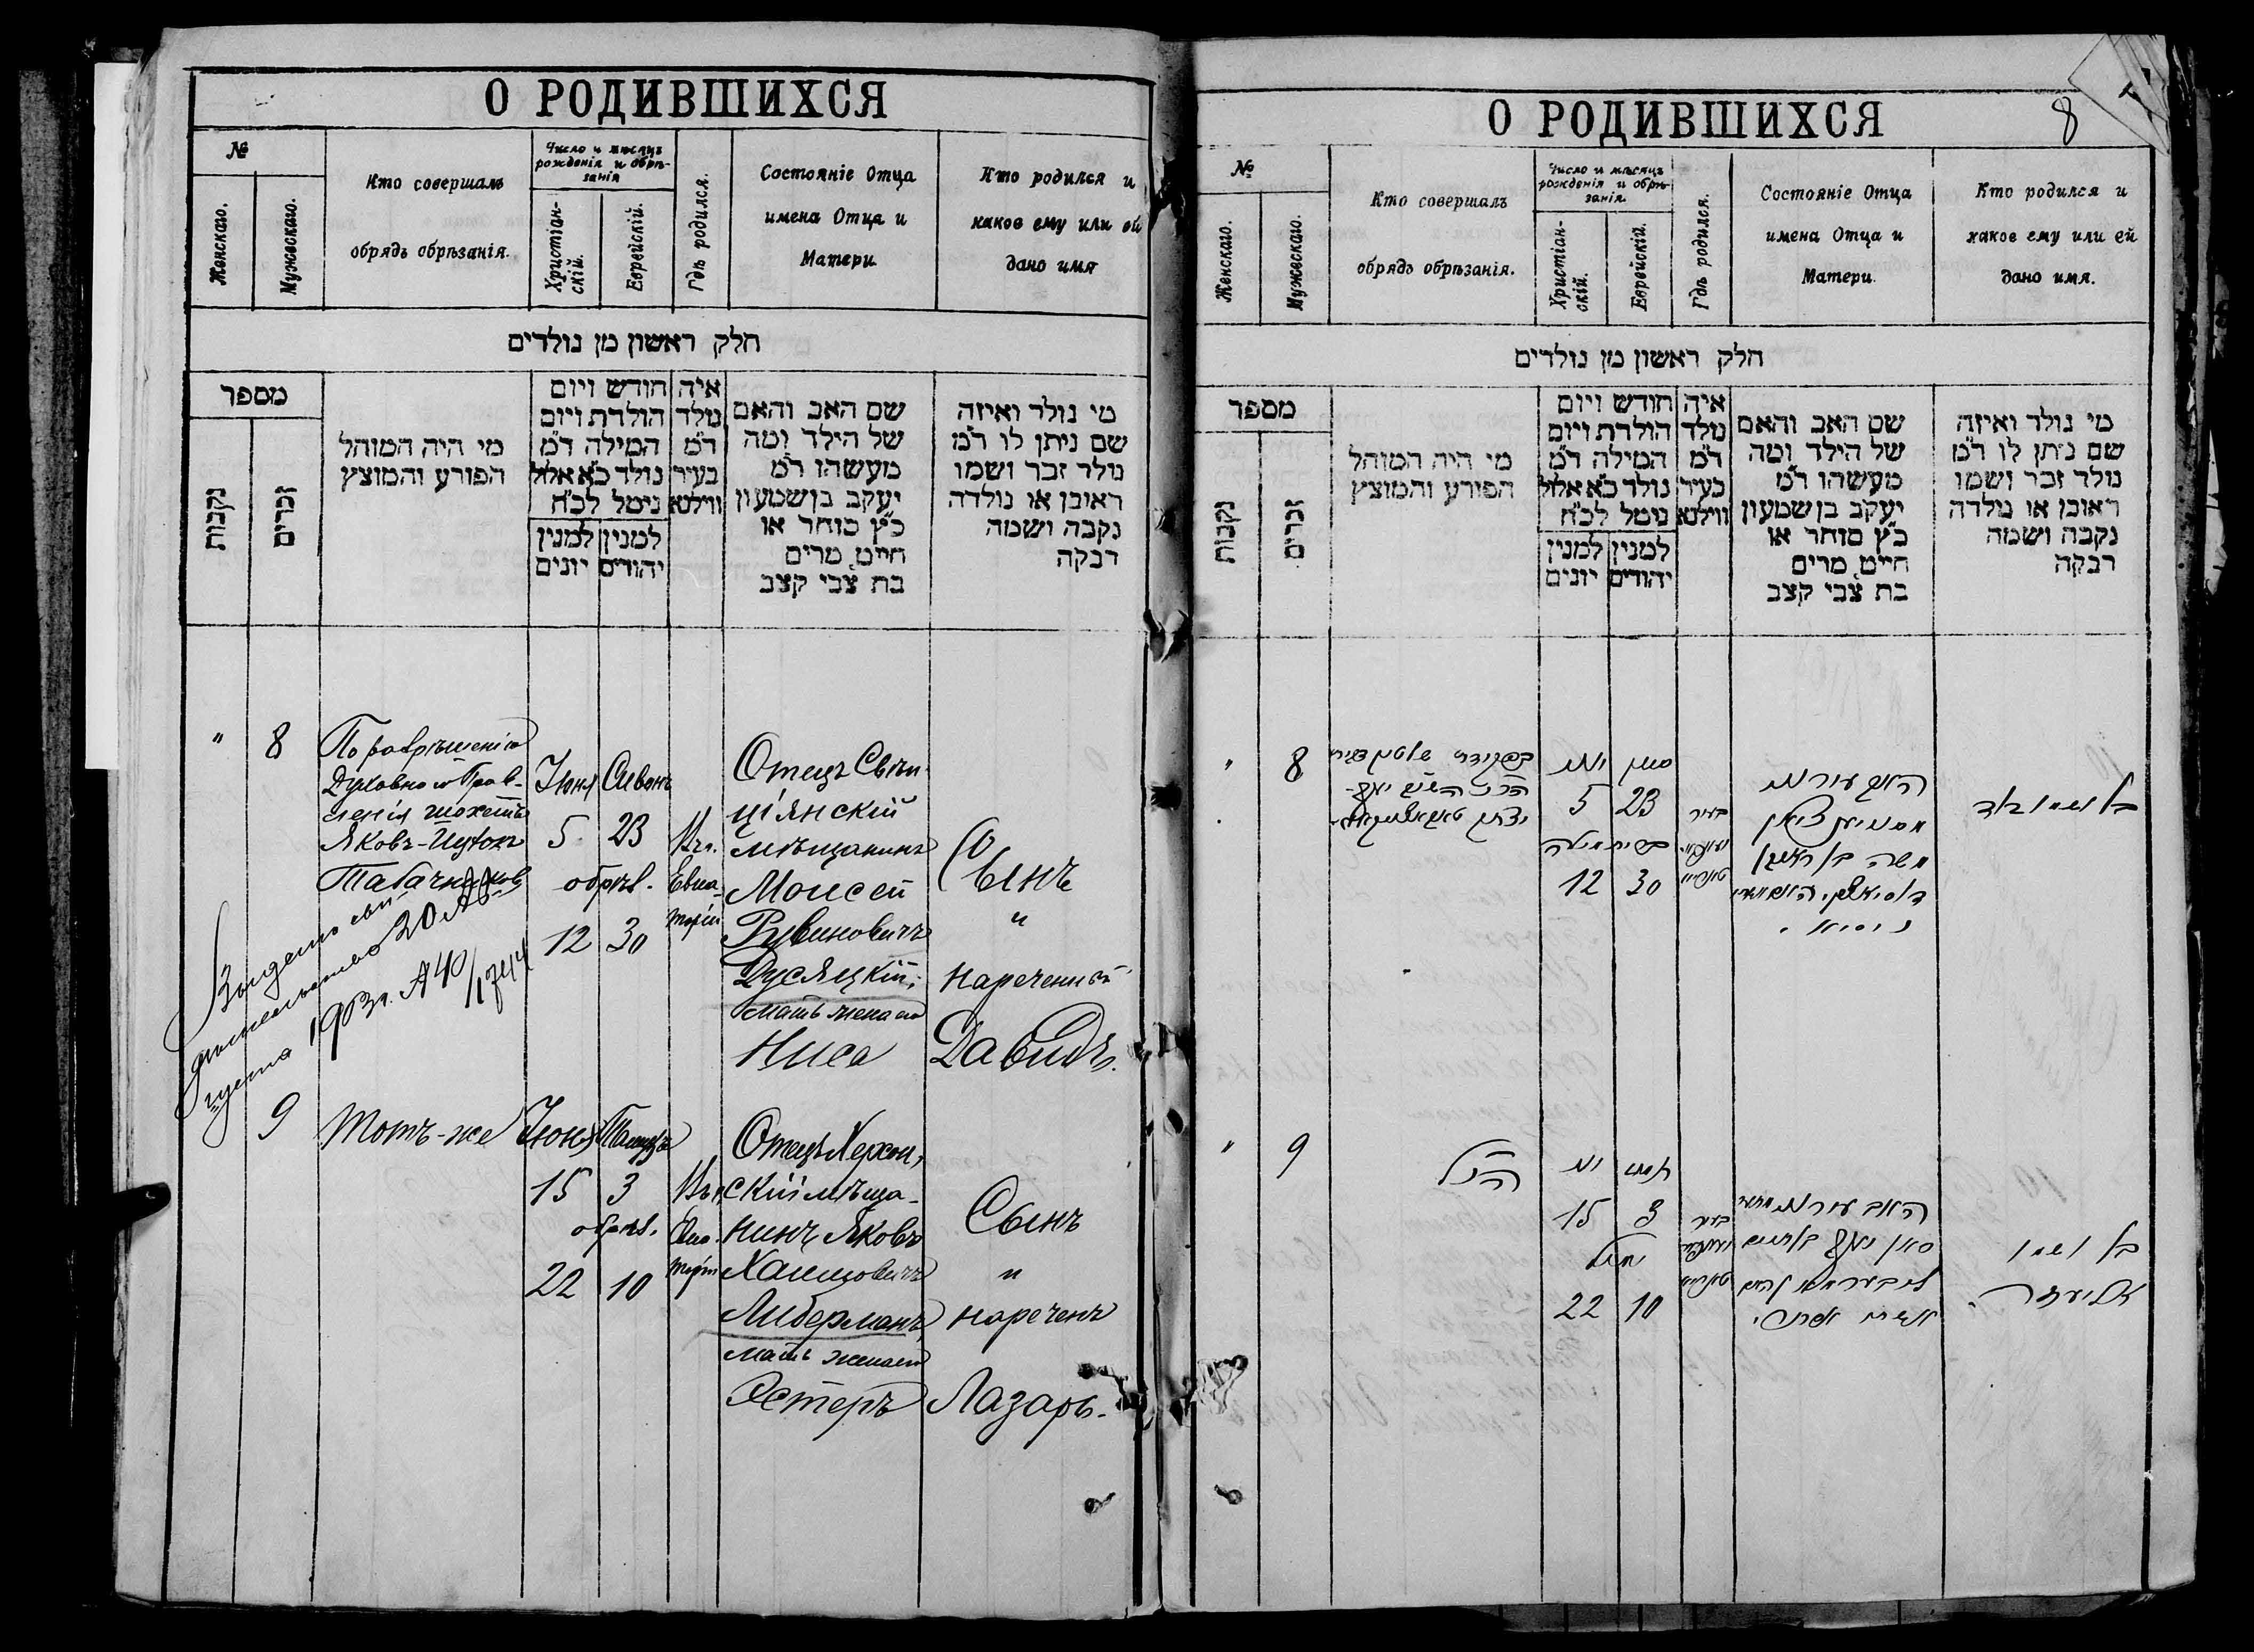 О РОДИВШИХСЯ
№
Женскаго.
Мужескаго.
Кто совершалъ
обрядъ обрѣзанія.
Число и мѣсяцъ
рожденія и обрѣ-
занія
Христіан-
скій.
Еврейскій.
Гдѣ родился.
Состояніе Отца
имена Отца и
Матери
Кто родился и
каков ему или ей
дано имя
חלק ראשון מן נולדים
מספר
נקבות
זכרים
מי היה המוהל
הפורע והמוצץ
חודש ויום
הולדת ויום
המילה ד״מ
נולד כ״א אלול
נימל לכ״ח
למנין למנין
יהודים יונים
איה
נולד
ד״מ
בעיר
ווילנא
שם האב והאם
של הילד ומה
מעשהו ד״מ
יעקב בן שמעון
כ״ץ סוחר או
חייט מרים
בת צבי קצב
מי נולד ואיזה
שם ניתן לו ד״מ
נולד זכר ושמו
ראובן או נולדה
נקבה ושמה
רבקה
" 8
По разрѣшенію
Духовнаго Прав-
ленія шохетъ
Яковъ-Ицхокъ
Табачниковъ
Іюня Сивонъ
5 23
обрѣз.
12 30
Въ г.
Евпа-
торіи
Отецъ Свѣн-
ціянскій
мѣщанинъ
Моисей
Рувиновичъ
Дусяцкій;
мать жена его
Ниса
Сынъ
"
Нареченный
Давидъ.
Выдано сви-
дѣтельство 20 Ав-
густа 1903 г.
9
Тотъ-же
Іюня Тамузъ
15 3
обрѣз.
22 10
Въ г.
Евпа-
торіи
Отецъ Херсон-
скій мѣща-
нинъ Яковъ
Хаимовичъ
Либерманъ
мать жена его
Эстеръ
Сынъ
"
нареченъ
Лазарь.
О РОДИВШИХСЯ
8
№
Женскаго.
Мужескаго.
Кто совершалъ
обрядъ обрѣзанія.
Число и мѣсяцъ
рожденія и обрѣ-
занія.
Христіан-
скій.
Еврейскій.
Гдѣ родился.
Состояніе Отца
имена Отца и
Матери.
Кто родился и
каков ему или ей
дано имя.
חלק ראשון מן נולדים
מספר
נקבות
זכרים
מי היה המוהל
הפורע והמוצץ
חודש ויום
הולדת ויום
המילה ד״מ
נולד כ״א אלול
נימל לכ״ח
למנין למנין
יהודים יונים
איה
נולד
ד״מ
בעיר
ווילנא
שם האב והאם
של הילד ומה
מעשהו ד״מ
יעקב בן שמעון
כ״ץ סוחר או
חייט מרים
בת צבי קצב
מי נולד ואיזה
שם ניתן לו ד״מ
נולד זכר ושמו
ראובן או נולדה
נקבה ושמה
רבקה
" 8
יוני סיון
5 23
12 30
בעיר
משה בן ראובן
בן ושמו דוד
" 9
הנ״ל
יוני תמוז
15 3
22 10
בעיר
בן ושמו
אליעזר.